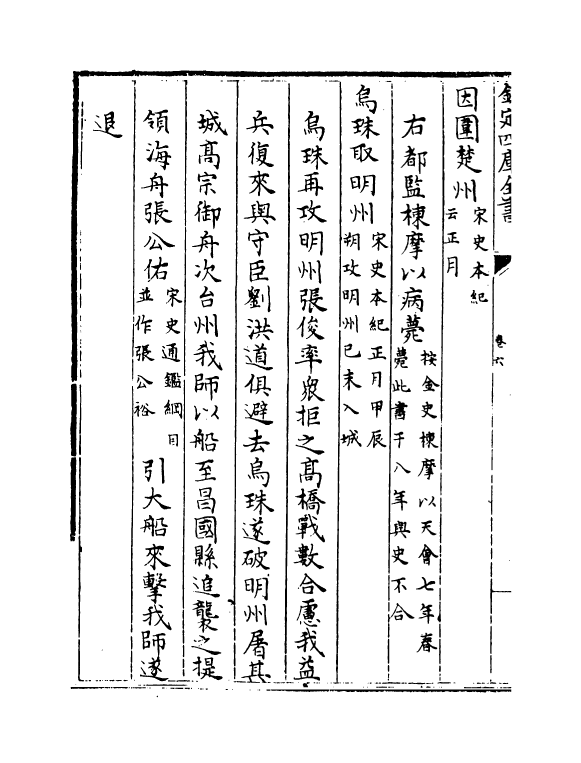 欽定四庫全書
卷六
因圍楚州宋史本紀云正月
右都監棟摩以病薨按金史棟摩以天會七年春薨此書于八年與史不合
烏珠取明州宋史本紀正月甲辰朔攻明州已未入城
烏珠再攻明州張俊率衆拒之髙橋戰數合慮我益
兵復來與守臣劉洪道俱避去烏珠遂破明州屠其
城髙宗御舟次台州我師以船至昌國縣追襲之提
領海舟張公佑宋史通鑑綱目並作張公裕引大船來擊我師遂
退